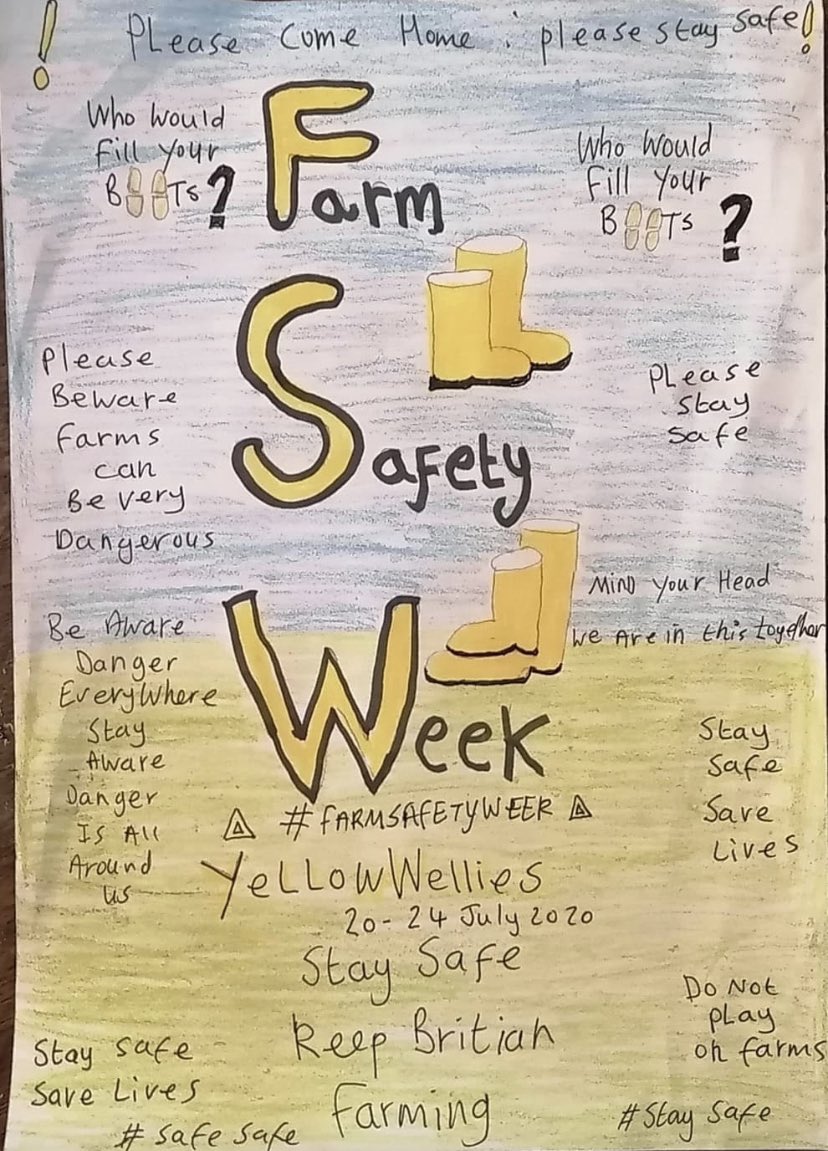 ! PLease Come Home : please stay safe!
Who Would
fill your
BOOTs?
Farm
Who Would
Fill Your
BOOTs ?
Safety
Please
Beware
farms
can
Be very
Dangerous
PLease
stay
safe
Mind Your Head
We Are in this together
Be Aware
Danger
EveryWhere
Stay
Aware
Danger
Is All
Around
us
Week
Stay
Safe
Save
Lives
#FARMSAFETYWEEK
YeLLowWellies
20-24 July 2020
Stay Safe
Keep Britiah
Farming
Do Not
pLay
on farms
Stay safe
Save Lives
# Safe Safe
#Stay Safe